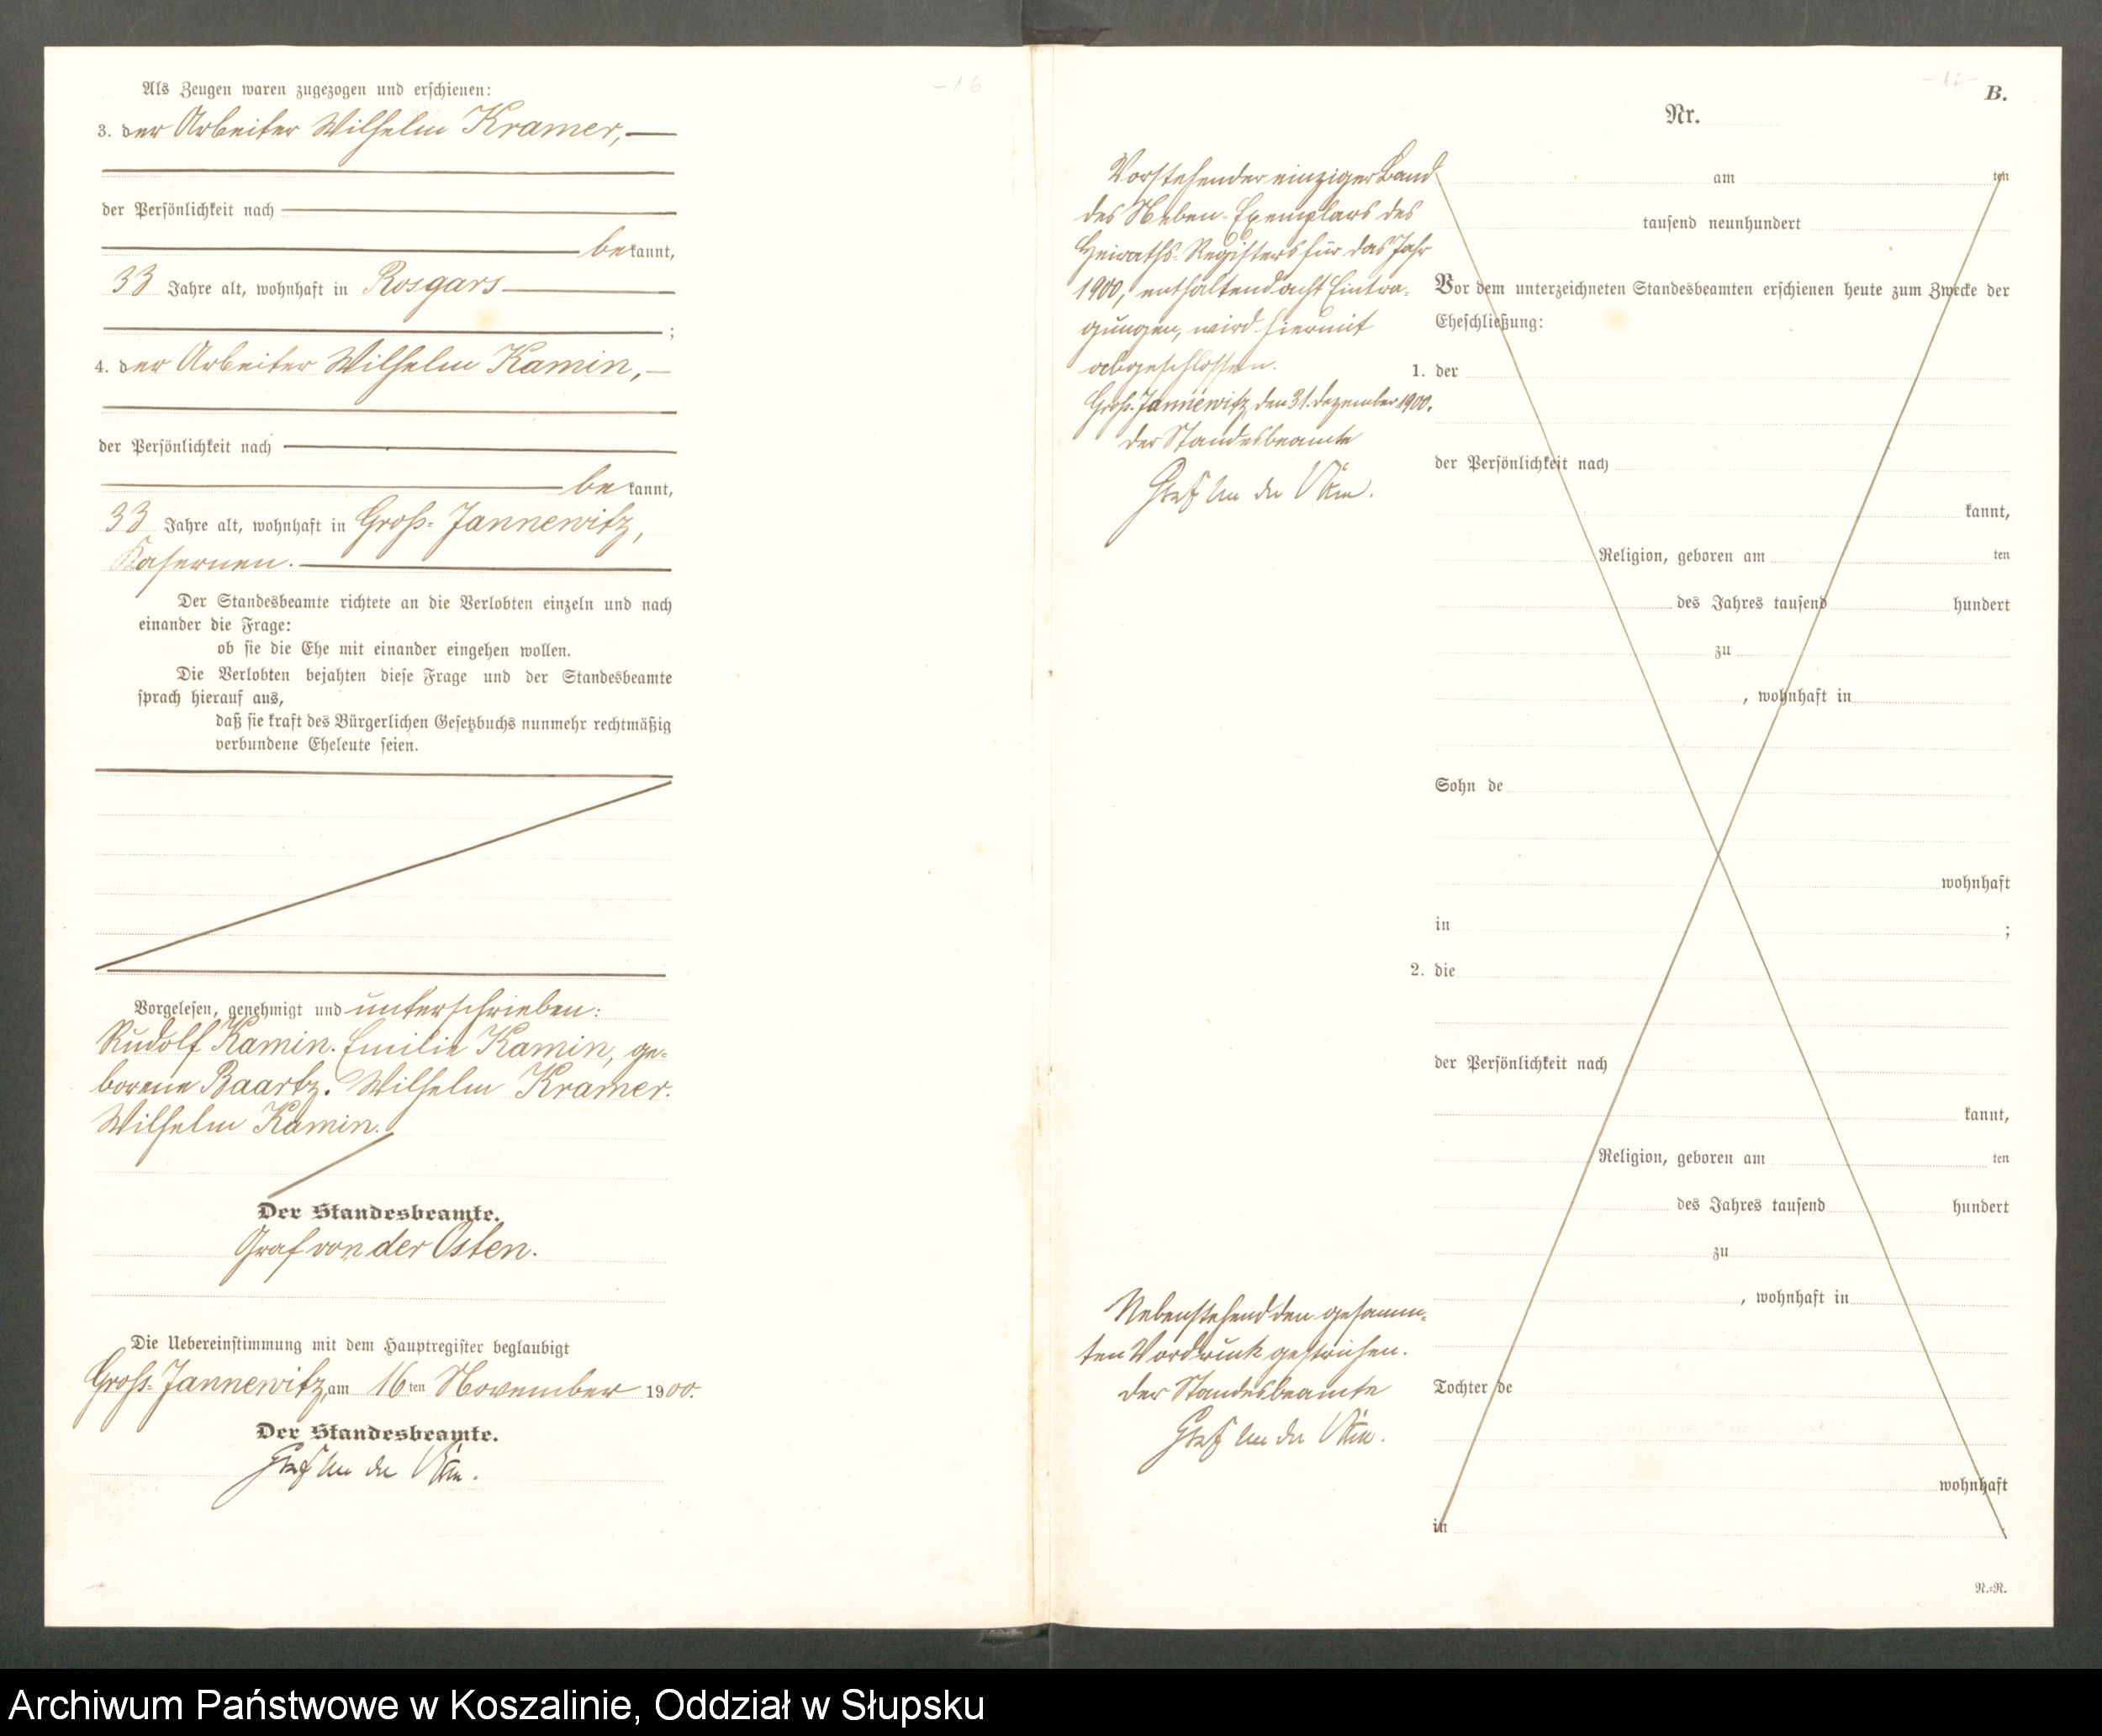 - 16
Als Zeugen waren zugezogen und erschienen:
3. der Arbeiter Wilhelm Kramer,
der Persönlichkeit nach
bekannt,
33 Jahre alt, wohnhaft in Rosgars
;
4. der Arbeiter Wilhelm Kamin,
der Persönlichkeit nach
bekannt,
33 Jahre alt, wohnhaft in Groß-Jannewitz,
Kasernen.
Der Standesbeamte richtete an die Verlobten einzeln und nach
einander die Frage:
ob sie die Ehe mit einander eingehen wollen.
Die Verlobten bejahten diese Frage und der Standesbeamte
sprach hierauf aus,
daß sie kraft des Bürgerlichen Gesetzbuchs nunmehr rechtmäßig
verbundene Eheleute seien.
Vorgelesen, genehmigt und unterschrieben:
Rudolf Kamin. Emilie Kamin, ge-
borene Baartz. Wilhelm Kramer.
Wilhelm Kamin.
Der Standesbeamte.
Graf von der Osten.
Die Uebereinstimmung mit dem Hauptregister beglaubigt
Groß-Jannewitz, am 16ten November 1900.
Der Standesbeamte.
Graf von der Osten.
- 17 -
B.
Nr.
Vorstehender einziger Band
des Neben-Exemplars des
Heiraths-Registers für das Jahr
1900, enthaltend acht Eintra-
gungen, wird hiermit
abgeschlossen.
Groß-Jannewitz, den 31. Dezember 1900.
Der Standesbeamte
Graf von der Osten.
am ten
tausend neunhundert
Vor dem unterzeichneten Standesbeamten erschienen heute zum Zwecke der
Eheschließung:
1. der
der Persönlichkeit nach
kannt,
Religion, geboren am ten
des Jahres tausend hundert
zu
, wohnhaft in
Sohn de
wohnhaft
in ;
2. die
der Persönlichkeit nach
kannt,
Religion, geboren am ten
des Jahres tausend hundert
zu
, wohnhaft in
Tochter de
wohnhaft
in
Nebenstehend den gesamm-
ten Vordruck gestrichen.
Der Standesbeamte
Graf von der Osten.
N.=R.
Archiwum Państwowe w Koszalinie, Oddział w Słupsku